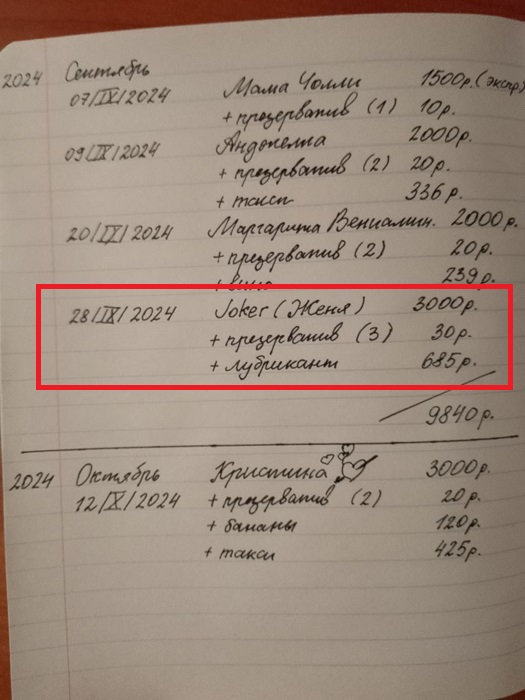 2024 Сентябрь
07/IX/2024 Мама Чолли 1500р. (экспр)
+ презерватив (1) 10р.
09/IX/2024 Андопелла 2000р.
+ презерватив (2) 20р.
+ такси 336р.
20/IX/2024 Маргарита Вениамин. 2000р.
+ презерватив (2) 20р.
+ вино 239р.
28/IX/2024 Joker (Женя) 3000р.
+ презерватив (3) 30р.
+ лубрикант 685р.
9840р.
2024 Октябрь Кристина 3000р.
12/X/2024 + презерватив (2) 20р.
+ бананы 120р.
+ такси 425р.